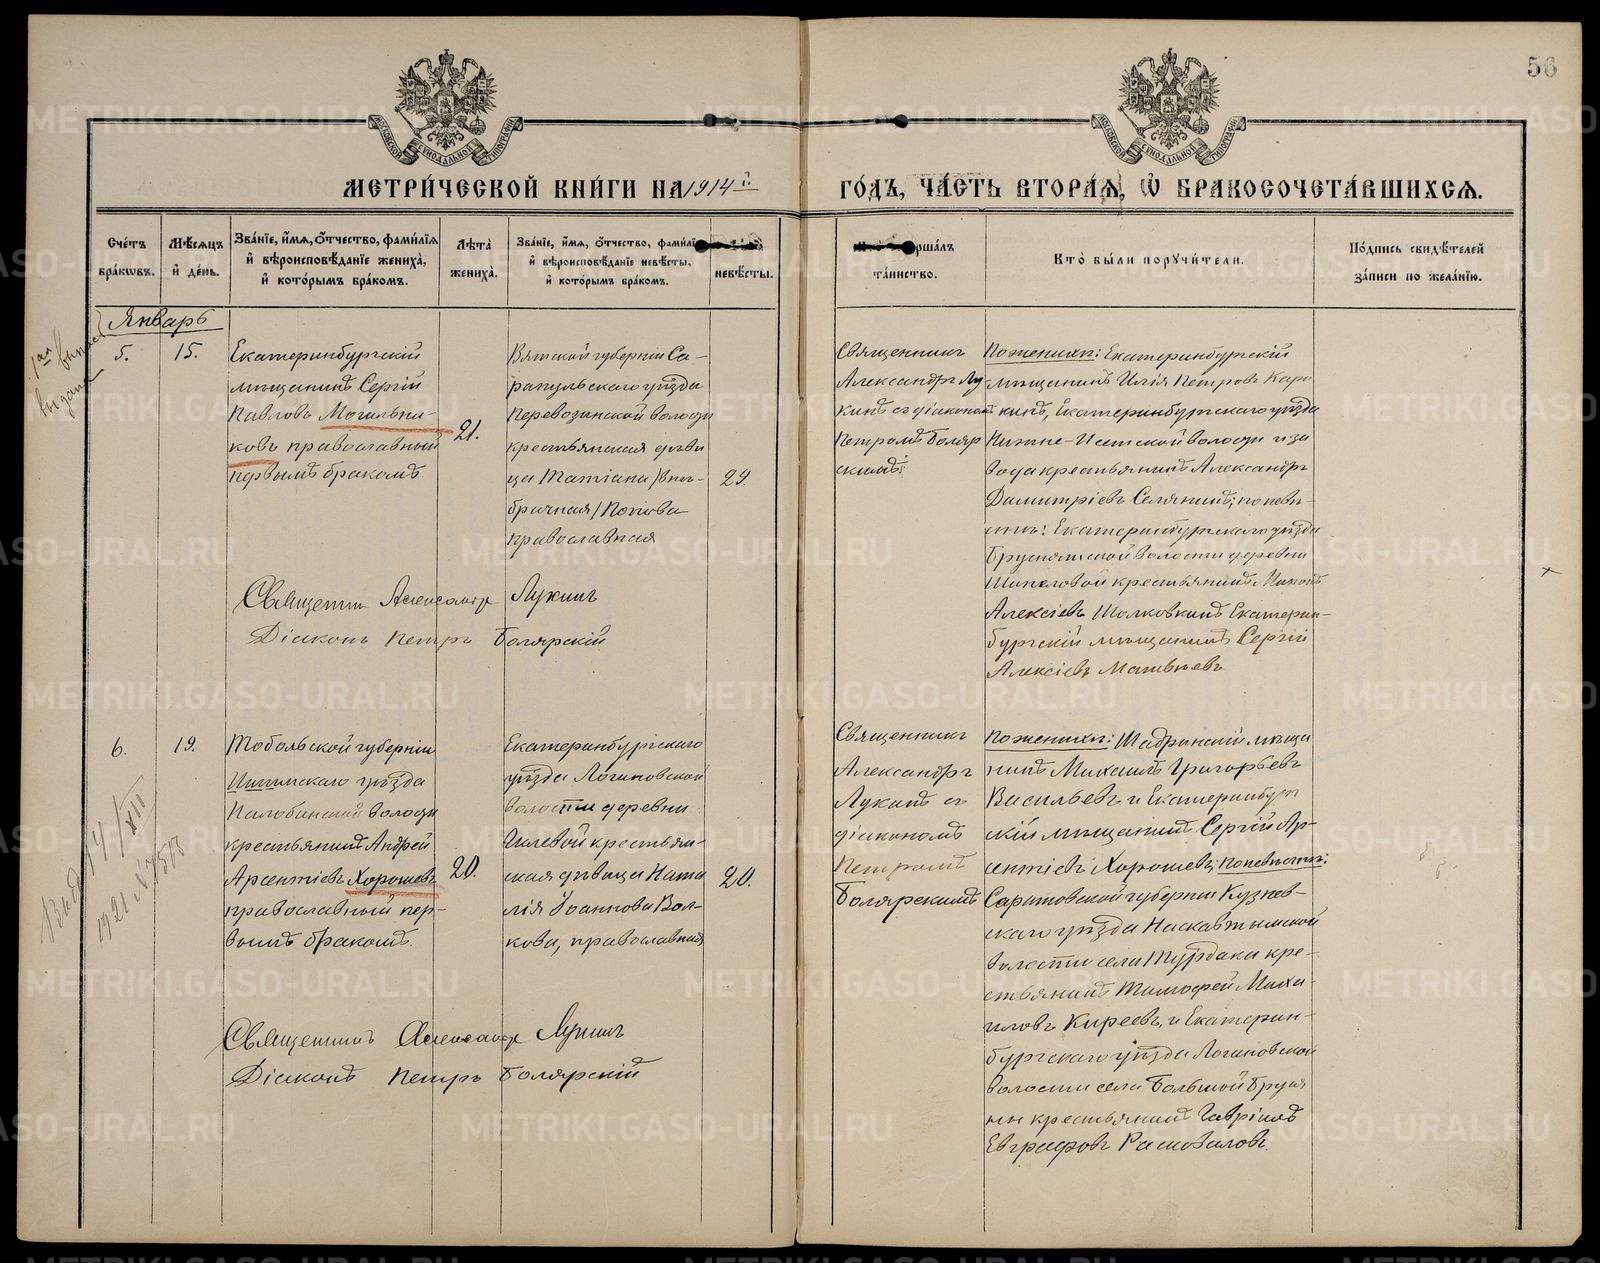 56
МЕТРИ́ЧЕСКОЙ КНИ́ГИ НА 1914 й
ГО́ДЪ, ЧА́СТЬ ВТОРА́Ѧ, Ѽ БРАКОСОЧЕТА́ВШИХСѦ.
Сче́тъ бра́кѡвъ.
Мѣ́сѧцъ и҆ де́нь.
Зва́нїе, и҆́мѧ, ѻ҆́тчество, фами́лїѧ
и҆ вѣроисповѣ́данїе жениха̀,
и҆ кото́рымъ бра́комъ.
Лѣ́та жениха̀.
Зва́нїе, и҆́мѧ, ѻ҆́тчество, фами́лїѧ
и҆ вѣроисповѣ́данїе невѣ́сты,
и҆ кото́рымъ бра́комъ.
невѣ́сты.
ршáлъ
та́инство.
Кто̀ бы́ли порꙋчи́тели.
По́дпись свидѣ́телей
за́писи по жела́нїю.
Январь
1ая выпись
выдана
5.
15.
Екатеринбургскій
мѣщанинъ Сергій
Павловъ Могильни-
ковъ православный
первымъ бракомъ.
21.
Вятской губерніи Са-
рапульскаго уѣзда
Перевозинской волости
крестьянская дѣви
ца Татіана /вне-
брачная/ Попова
православная
Священникъ
Александръ Лу
кинъ съ діакономъ
Петромъ Боляр
скимъ:
По женихѣ: Екатеринбургскій
мѣщанинъ Илія Петровъ Каро
кинъ, Екатеринбургскаго уѣзда
Нижне-Исетской волости и за
вода крестьянинъ Александръ
Димитріевъ Селянинъ; по невѣ-
стѣ: Екатеринбургскаго уѣзда
Бруснятской волости деревни
крестьянинъ
Алексіевъ Шолковкинъ Екатерин-
бургскій мѣщанинъ Сергій
Алексіевъ Матвѣевъ
Священникъ Александръ Лукинъ
Діаконъ Петръ Болярскій
6.
19.
Тобольской губерніи
Ишимскаго уѣзда
волости
крестьянинъ Андрей
Арсентіевъ Хорошевъ
православный пер-
вымъ бракомъ.
20.
Екатеринбургскаго
уѣзда Логиновской
волости деревни
Гилевой крестьян-
ская дѣвица Ната
лія Іоаннова Вол-
кова, православная
20.
Священникъ
Александръ
Лукинъ съ
діакономъ
Петромъ
Болярскимъ
По женихѣ: Шадринскій мѣща
нинъ Михаилъ Григорьевъ
Васильевъ и Екатеринбург
скій мѣщанинъ Сергій Ар-
сентіевъ Хорошевъ; по невѣстѣ:
Саратовской губерніи Кузнец-
каго уѣзда Наскафтымской
волости села Турдаки кре-
стьянинъ Тимофей Миха-
иловъ Киреевъ, и Екатерин-
бургскаго уѣзда Логиновской
волости села Большой Брусян
ны крестьянинъ Гавріилъ
Евграфовъ Расковаловъ.
Священникъ Александръ Лукинъ
Діаконъ Петръ Болярскій
14/XII
1921
METRIKI.GASO-URAL.RU